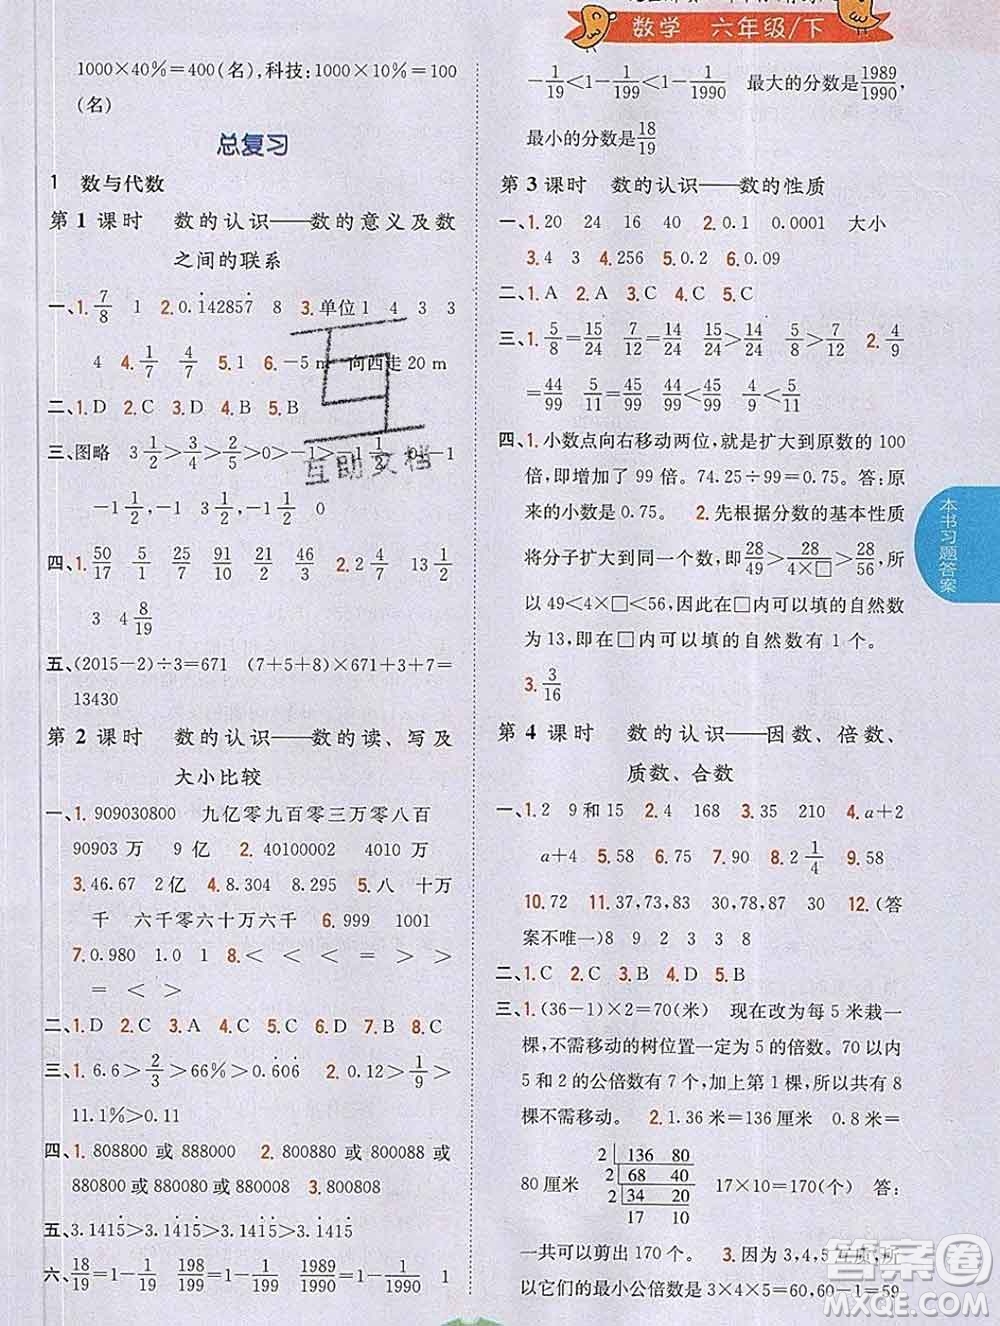 数学 六年级/下
1000×40%=400(名),科技:1000×10%=100
(名)
总复习
1 数与代数
第 1 课时 数的认识——数的意义及数
之间的联系
一、1. 7/8 1 2. 0.1̇42857̇ 8 3. 单位1 4 3 3
4 4. 1/7 4/7 5. 1 6. −5 m 向西走 20 m
二、1. D 2. C 3. A 4. D 5. B
三、图略 3 1/2>3/4>2/5>0>
−1 1/2,−1 3/5,−1 1/2 0
四、1. 50/17 5/17 25/71 7/90 2. 2 4/7 13 1/2
3 4 8/19
五、(2015−2)÷3=671 (7+5+8)×671+3+7=
13430
第 2 课时 数的认识——数的读、写及
大小比较
一、1. 909030800 九亿零九百零三万零八百
90903 万 9 亿 2. 40100002 4010 万
3. 46.67 2 亿 4. 8.304 8.295 5. 八 十万
千 六千零六十万六千 6. 999 1001
7. 0.980 1.00 1 8. < < < <
> > < =
二、1. D 2. C 3. A 4. D 5. A 6. D 7. B 8. C
三、1. 6.6>2/3>66%>0.6̇06̇ 2. 1.4>1/9>
11.1%>0.11
四、1. 808800 或 888000 2. 800808 或 880008 或
880800 或 880080 或 888000 3. 800808
五、3.1415̇>3.141̇5̇>3.1̇415̇>3.14̇15̇
六、18/19=1−1/19 198/199=1−1/199 1989/1990=1−1/1990 1
−1/19<1−1/199<1−1/1990 最大的分数是1989/1990
最小的分数是18/19
第 3 课时 数的认识——数的性质
一、1. 20 24 16 40 2. 0.1 0.0001 大小
3. 4 3 4. 256 5. 0.2 6. 0.09
二、1. A 2. A 3. C 4. D 5. C
三、1. 5/8=15/24 7/12=14/24 5/8>7/12 2. 4/9
=44/99 5/11=45/99 4/9<5/11
四、1. 小数点向右移动两位,就是扩大到原数的 100
倍,即增加了 99 倍。74.25÷99=0.75。答:原
来的小数是 0.75。 2. 先根据分数的基本性质
将分子扩大到同一个数,即28/49>28/(4×□)>28/56,所
以 49<4×□<56,因此在□内可以填的自然数
为 13,即在□内可以填的自然数有 1 个。
3. 3/16
第 4 课时 数的认识——因数、倍数、
质数、合数
一、1. 2 9 和 15 2. 4 168 3. 35 210 4. a+2
a+4 5. 58 6. 75 7. 90 8. 2 1/4 9. 42
10. 72 11. 37,73,83 30,78,87 30 12. (答
案不唯一)8 9 2 3 3 8
二、1. C 2. C 3. A 4. D 5. B
三、1. (36−1)×2=70(米) 现在改为每 5 米栽一
棵,不需移动的树位置一定为 5 的倍数。70 以内
5 和 2 的公倍数有 7 个,加上第 1 棵,所以共有 8
棵不需移动。 2. 1.36 米=136 厘米 0.8 米=
80 厘米 2 136 80 2 68 40 2 34 20 17 10 17×10=170(个) 答:
一共可以剪出 170 个。 3. 因为 3,4,5 互质,所
以它们的最小公倍数是 3×4×5=60,60−1=59
本书习题答案
互助文档
答案圈
MXQE.COM